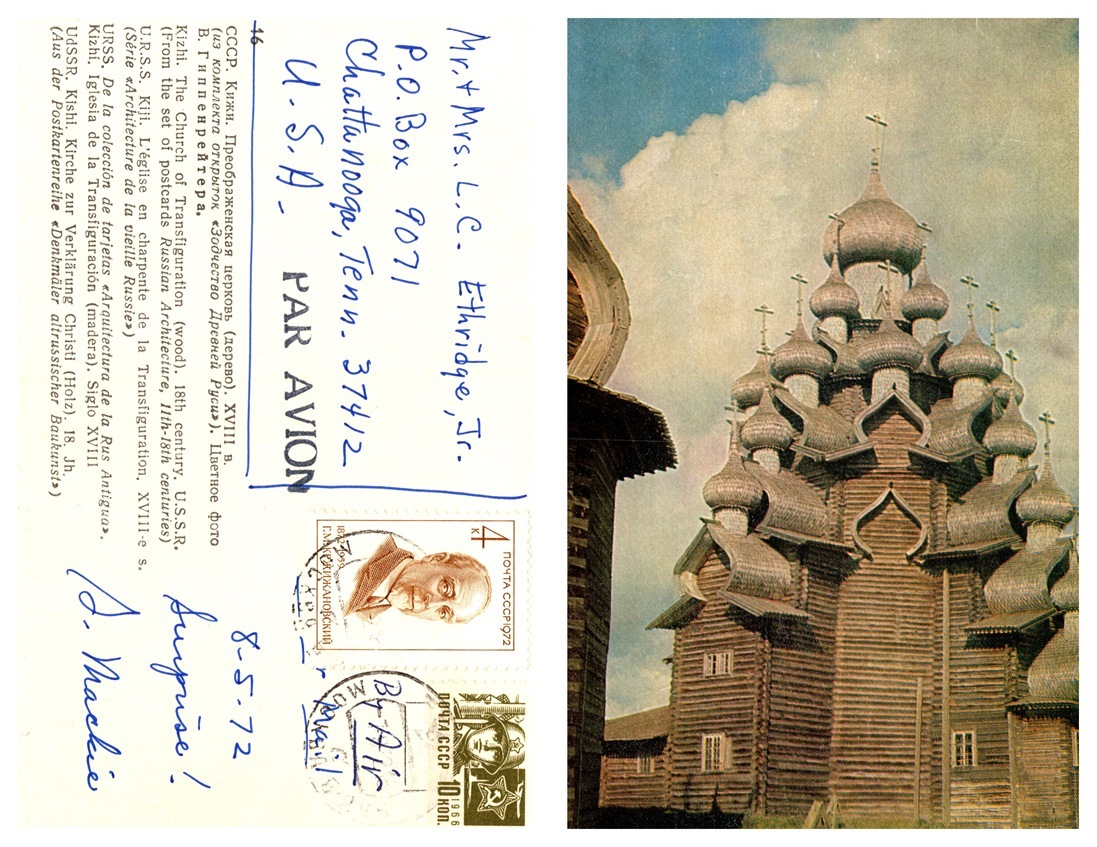 Mr. & Mrs. L.C. Ethridge, Jr.
P.O. Box 9071
Chattanooga, Tenn. 37412
U.S.A.
PAR AVION
16
СССР. Кижи. Преображенская церковь (дерево). XVIII в.
(из комплекта открыток «Зодчество Древней Руси»). Цветное фото
В. Гиппенрейтера.
Kizhi. The Church of Transfiguration (wood). 18th century. U.S.S.R.
(From the set of postcards Russian Architecture, 11th-18th centuries)
U.R.S.S. Kiji. L'église en charpente de la Transfiguration, XVIII-e s.
(Série «Architecture de la vieille Russie»)
URSS. De la colección de tarjetas «Arquitectura de la Rus Antigua».
Kizhí. Iglesia de la Transfiguración (madera). Siglo XVIII
UdSSR. Kishi. Kirche zur Verklärung Christi (Holz), 18. Jh.
(Aus der Postkartenreihe «Denkmäler altrussischer Baukunst»)
ПОЧТА СССР 1972
4 к
1872-1959
Г.М. КРЖИЖАНОВСКИЙ
ПОЧТА СССР
10 КОП.
1966
By Air
mail
8-5-72
Surprise!
S. Mackie